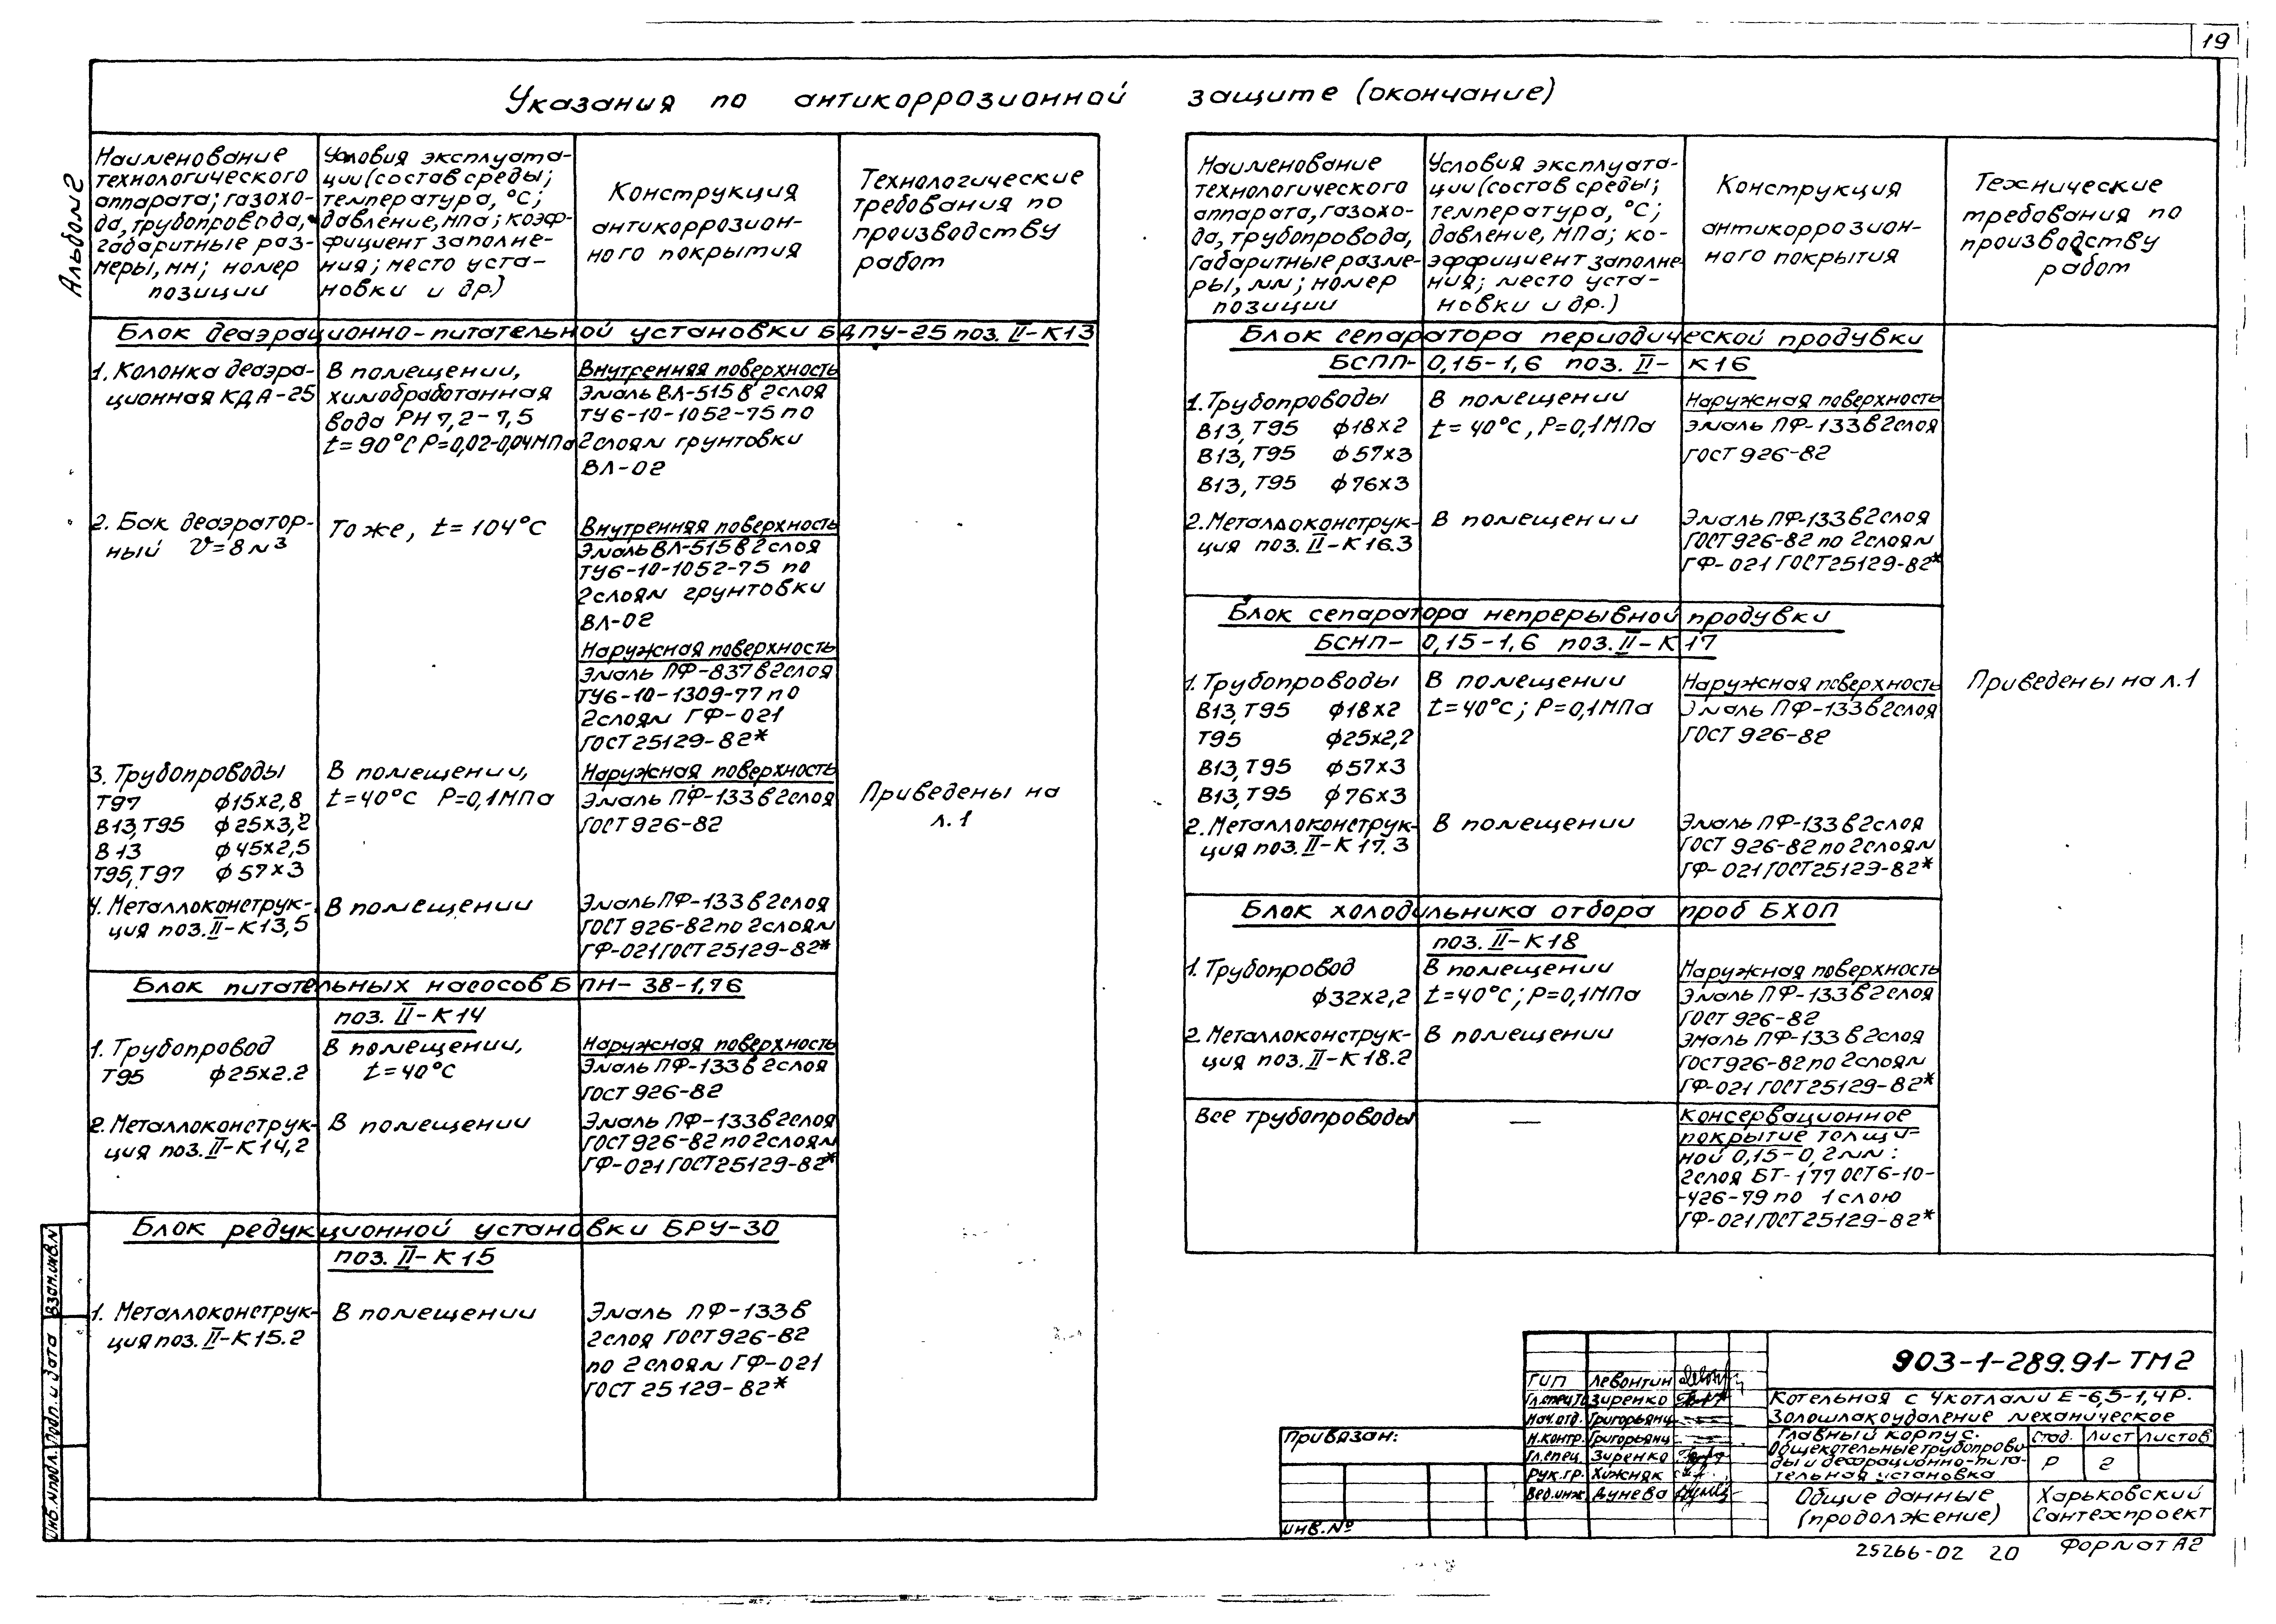 19
Альбом 2
Указания по антикоррозионной защите (окончание)
Наименование
технологического
аппарата; газохо-
да, трубопровода,
габаритные раз-
меры, мм; номер
позиции
Условия эксплуата-
ции (состав среды;
температура, °С;
давление, МПа; коэф-
фициент заполне-
ния; место уста-
новки и др.)
Конструкция
антикоррозион-
ного покрытия
Технологические
требования по
производству
работ
Блок деаэрационно-питательной установки БДПУ-25 поз. II-К13
1. Колонка деаэра-
ционная КДА-25
В помещении,
химобработанная
вода РН 7,2-7,5
t=90°С Р=0,02-0,04МПа
Внутренняя поверхность
Эмаль ВЛ-515 в 2 слоя
ТУ6-10-1052-75 по
2 слоям грунтовки
ВЛ-02
2. Бак деаэратор-
ный V=8м3
То же, t=104°С
Внутренняя поверхность
Эмаль ВЛ-515 в 2 слоя
ТУ6-10-1052-75 по
2 слоям грунтовки
ВЛ-02
Наружная поверхность
Эмаль ПФ-837 в 2 слоя
ТУ6-10-1309-77 по
2 слоям ГФ-021
ГОСТ 25129-82*
3. Трубопроводы
Т97 ф15х2,8
В13,Т95 ф25х3,2
В13 ф45х2,5
Т95,Т97 ф57х3
В помещении,
t=40°С Р=0,1МПа
Наружная поверхность
Эмаль ПФ-133 в 2 слоя
ГОСТ 926-82
Приведены на
л.1
4. Металлоконструк-
ция поз. II-К13,5
В помещении
Эмаль ПФ-133 в 2 слоя
ГОСТ 926-82 по 2 слоям
ГФ-021 ГОСТ 25129-82*
Блок питательных насосов БПН-38-1,76
поз. II-К14
1. Трубопровод
Т95 ф25х2.2
В помещении,
t=40°С
Наружная поверхность
Эмаль ПФ-133 в 2 слоя
ГОСТ 926-82
2. Металлоконструк-
ция поз. II-К14,2
В помещении
Эмаль ПФ-133 в 2 слоя
ГОСТ 926-82 по 2 слоям
ГФ-021 ГОСТ 25129-82*
Блок редукционной установки БРУ-30
поз. II-К15
1. Металлоконструк-
ция поз. II-К15.2
В помещении
Эмаль ПФ-133 в
2 слоя ГОСТ 926-82
по 2 слоям ГФ-021
ГОСТ 25129-82*
Наименование
технологического
аппарата, газохо-
да, трубопровода,
габаритные разме-
ры, мм; номер
позиции
Условия эксплуата-
ции (состав среды;
температура, °С;
давление, МПа; ко-
эффициент заполне-
ния; место уста-
новки и др.)
Конструкция
антикоррозион-
ного покрытия
Технические
требования по
производству
работ
Блок сепаратора периодической продувки
БСПП-0,15-1,6 поз. II-К16
1. Трубопроводы
В13,Т95 ф18х2
В13,Т95 ф57х3
В13,Т95 ф76х3
В помещении
t=40°С, Р=0,1МПа
Наружная поверхность
Эмаль ПФ-133 в 2 слоя
ГОСТ 926-82
2. Металлоконструк-
ция поз. II-К16.3
В помещении
Эмаль ПФ-133 в 2 слоя
ГОСТ 926-82 по 2 слоям
ГФ-021 ГОСТ 25129-82*
Блок сепаратора непрерывной продувки
БСНП-0,15-1,6 поз. II-К17
1. Трубопроводы
В13,Т95 ф18х2
Т95 ф25х2,2
В13,Т95 ф57х3
В13,Т95 ф76х3
В помещении
t=40°С; Р=0,1МПа
Наружная поверхность
Эмаль ПФ-133 в 2 слоя
ГОСТ 926-82
Приведены на л.1
2. Металлоконструк-
ция поз. II-К17.3
В помещении
Эмаль ПФ-133 в 2 слоя
ГОСТ 926-82 по 2 слоям
ГФ-021 ГОСТ 25129-82*
Блок холодильника отбора проб БХОП
поз. II-К18
1. Трубопровод
ф32х2,2
В помещении
t=40°С; Р=0,1МПа
Наружная поверхность
Эмаль ПФ-133 в 2 слоя
ГОСТ 926-82
2. Металлоконструк-
ция поз. II-К18.2
В помещении
Эмаль ПФ-133 в 2 слоя
ГОСТ 926-82 по 2 слоям
ГФ-021 ГОСТ 25129-82*
Все трубопроводы
—
Консервационное
покрытие толщи-
ной 0,15-0,2мм:
2 слоя БТ-177 ОСТ 6-10-
-426-79 по 1 слою
ГФ-021 ГОСТ 25129-82*
Взам.инв.N
Подп. и дата
Инв.Nподл.
Привязан:
Инв.№
ГИП Левонтин
Гл.спец.ТО Зиренко
Нач.отд. Григорьянц
Н.контр. Григорьянц
Гл.спец. Зиренко
Рук.гр. Хижняк
Вед.инж. Дунева
903-1-289.91-ТМ2
Котельная с 4 котлами Е-6,5-1,4Р.
Золошлакоудаление механическое
Главный корпус.
Общекотельные трубопрово-
ды и деаэрационно-пита-
тельная установка
Стад. Лист Листов
Р 2
Общие данные
(продолжение)
Харьковский
Сантехпроект
25266-02 20 Формат А2